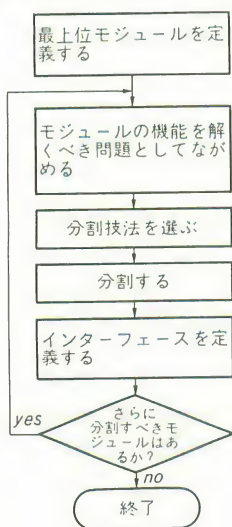 最上位モジュールを定
義する
モジュールの機能を解
くべき問題としてなが
める
分割技法を選ぶ
分割する
インターフェースを定
義する
さらに
分割すべきモ
ジュールはあ
るか?
yes
no
終了